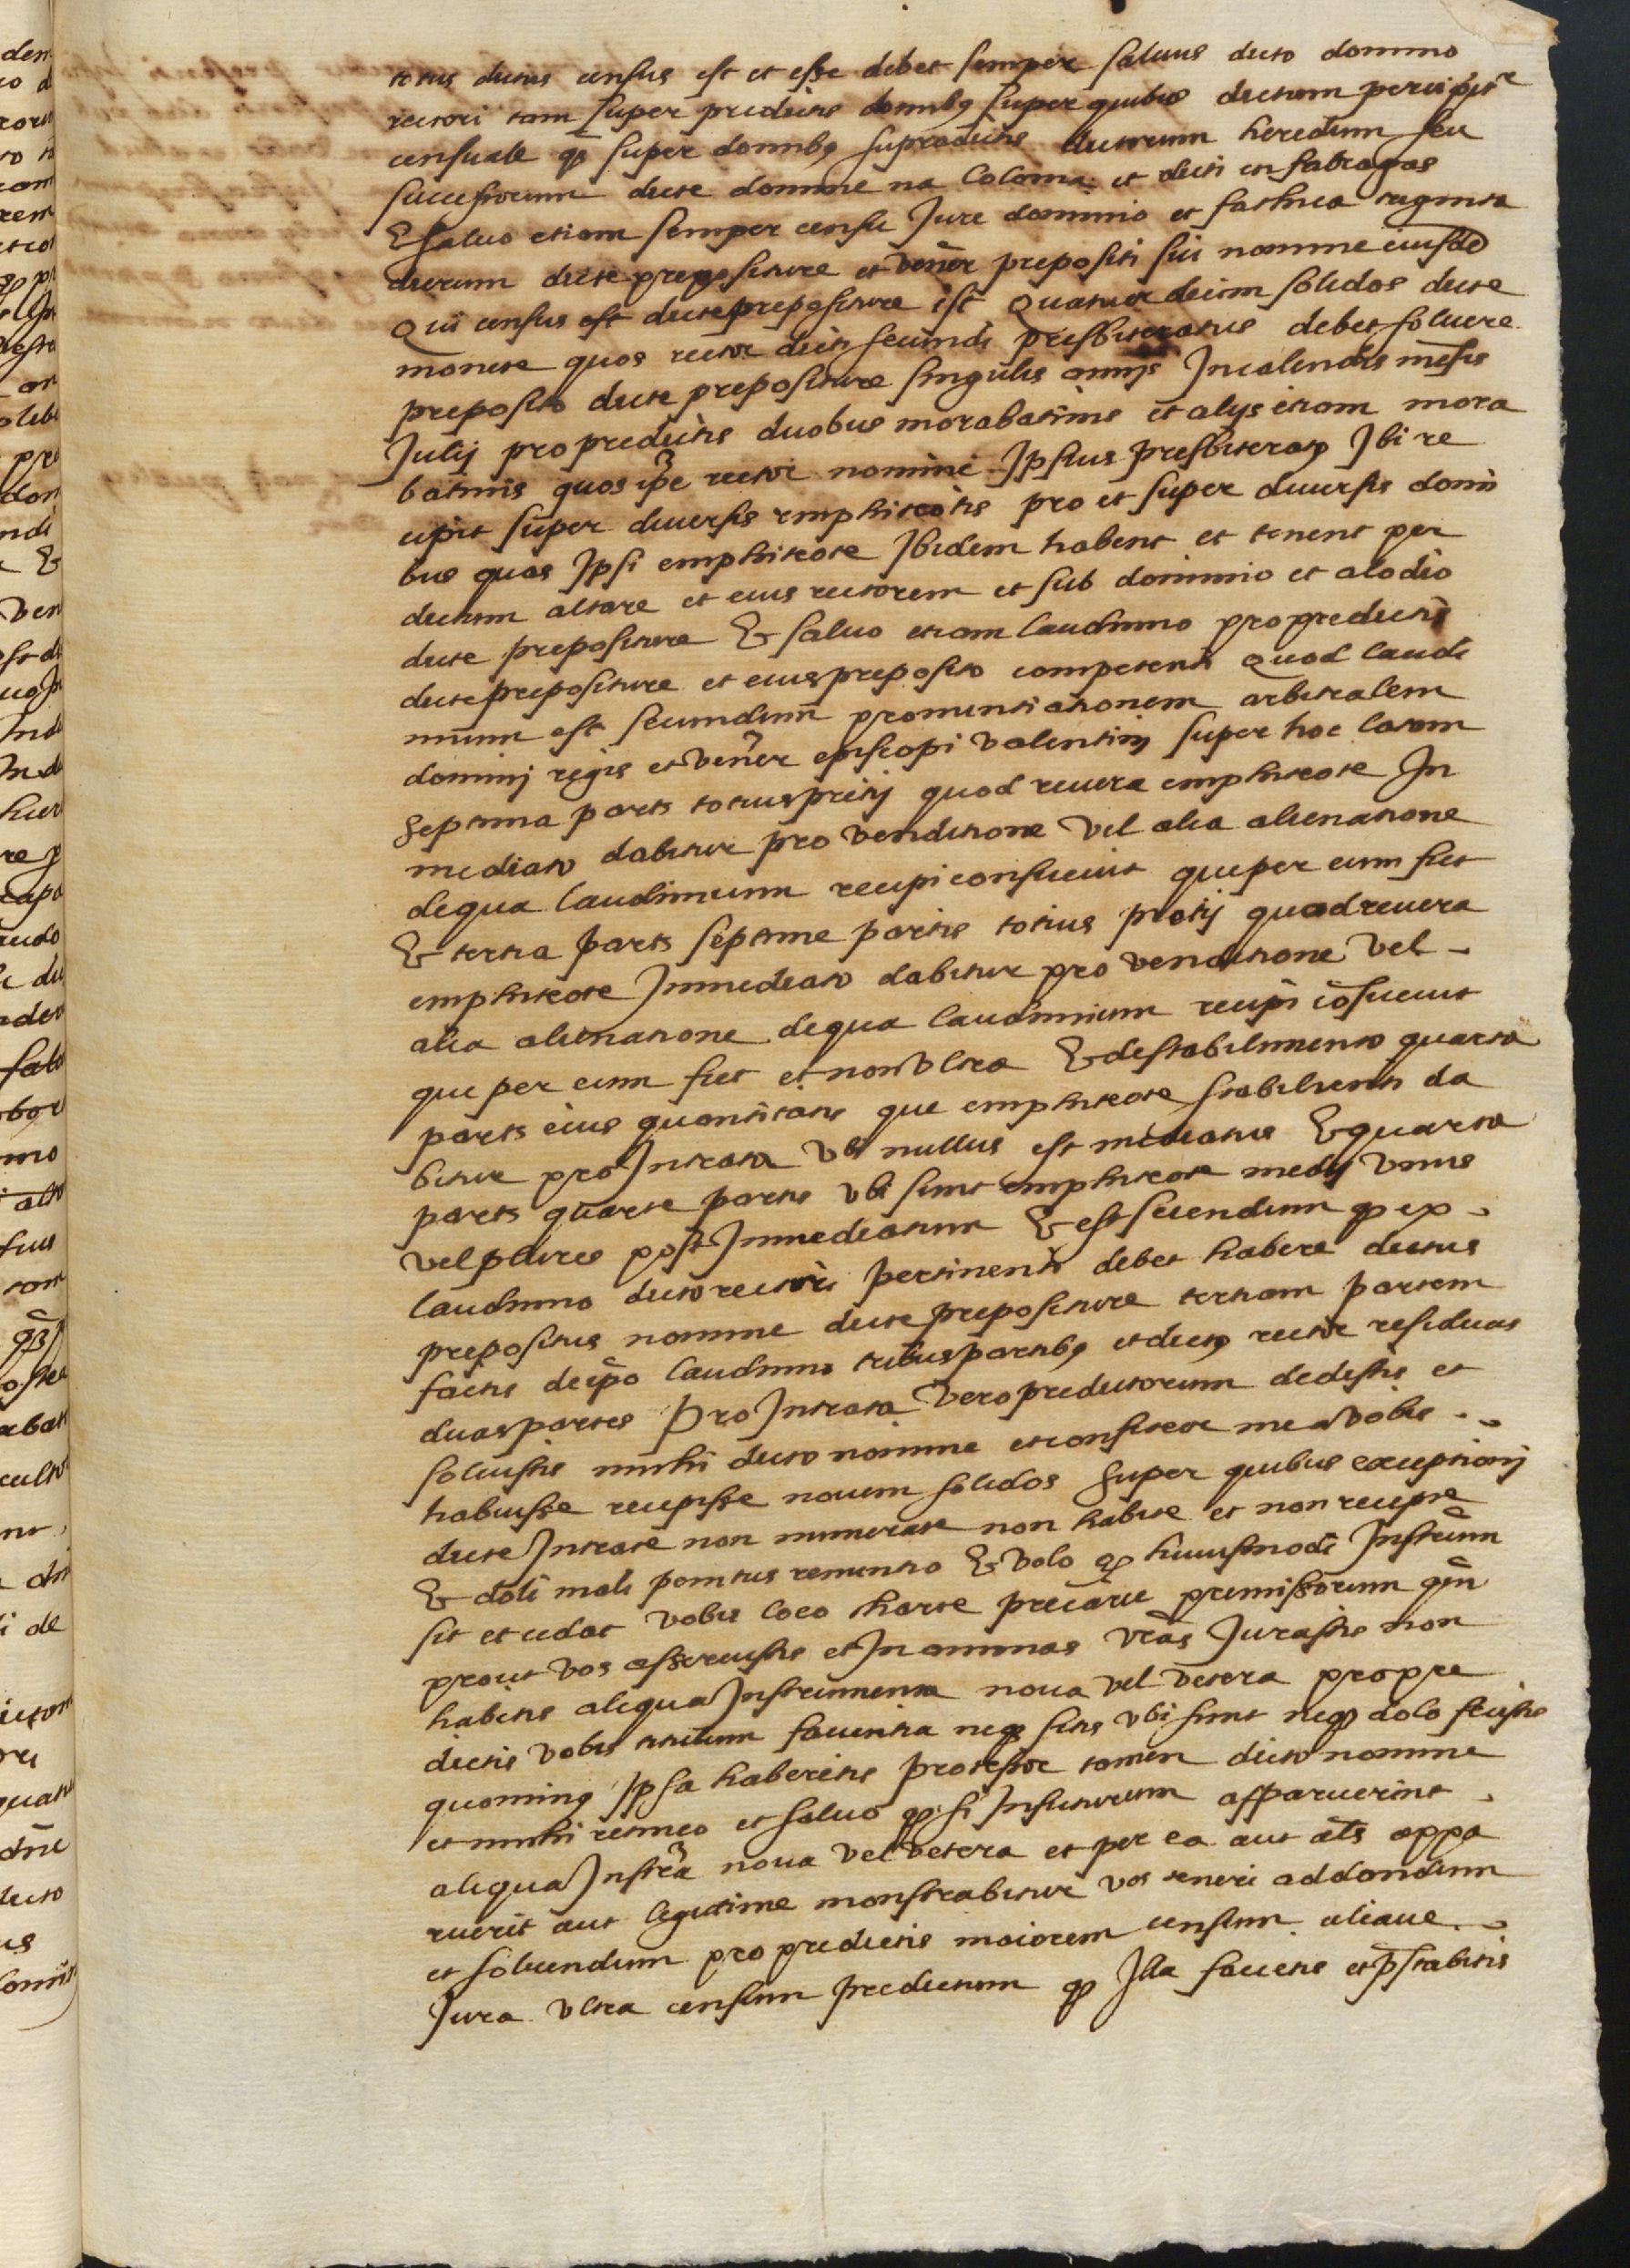 totus dictus census est et esse debet semper salvus dicto domino
rectori tam super predictis domibꝯ super quibus dictum percipit
censuale qꝫ super domibꝯ supradictis dictorum heredum seu
successorum dicte domine na Coloma et dicti en fabragas
& salvo etiam semper censu Jure dominio et fathica triginta
dierum dicte prepositure et Vener prepositi sui nomine eiusde
Qui census est dicte prepositure est Quatuordecim solidos dicte
monete quos rector dicti secundi presbiteratus debet solvere
preposito dicte prepositure singulis annijs In calendis mensis
Julij pro predictis duobus morabatinis et alijs etiam mora
batinis quos ipe rector nomine Ipsius presbiteratꝯ Ibi re
cipit super diversis emphiteotis pro et super diversis domi
bus quas Ipsi emphiteote Ibidem habent et tenent per
dictum altare et eius rectorem et sub dominio et alodio
dicte prepositure & salvo etiam laudimio pro predictis
dicte prepositure et eius preposito competenti Quod laudi
mium est secundum pronuntiationem arbitralem
dominj regis et Vener episcopi Valentinj super hoc latam
septima pars totius pretij quod revera emphiteote In
mediato dabitur pro venditione Vel alia alienatione
de qua laudimium recipi consuevit que per eum fiet
& tertia pars septime partis totius pretij quod revera
emphiteote Inmediato dabitur pro venditione Vel
alia alienatione de qua laudimium recipi cōsuevit
que per eum fiet et non Vltra & de stabilimento quarta
pars eius quantitatis que emphiteote stabilienti da
bitur pro Intrata Vbi nullus est mediatus & quarta
pars quarte partis vbi sunt emphiteote medij Vnus
Vel plures post Inmediatum & est sciendum qꝫ ex
laudimio dicto rectori pertinenti debet habere dictus
prepositus nomine dicte prepositure tertiam partem
factis de ipo laudimio tribus partibꝯ et dictꝯ rector residuas
duas partes Pro Intrata Vero predictorum dedistis et
solvistis michi dicto nomine et confiteor me a Vobis
habuisse recepisse novem solidos super quibus exceptionj
dicte Intrate non numerate non habite et non recepte
& doli mali penitus renuntio & Volo qꝫ huiusmodi Instrum
sit et cedat Vobis loco carte precarie premissorum qm
prout Vos asseruistis et In animas Vras Jurastis non
habetis aliqua Instrumenta nova Vel Vetera pro pre
dictis Vobis titulum facientia neqꝫ scitis Vbi sunt neqꝫ dolo fecistis
quominꝯ Ipsa haberetis protestor tamen dicto nomine
et michi retineo et salvo qꝫ si In futurum apparuerint
aliqua Instra nova Vel Vetera et per ea aut als appa
ruerit aut legitime monstrabitur Vos teneri ad dandum
et solvendum pro predictis maiorem censum aliave
Jura Vltra censum predictum qꝫ Illa facietis et pstabitis